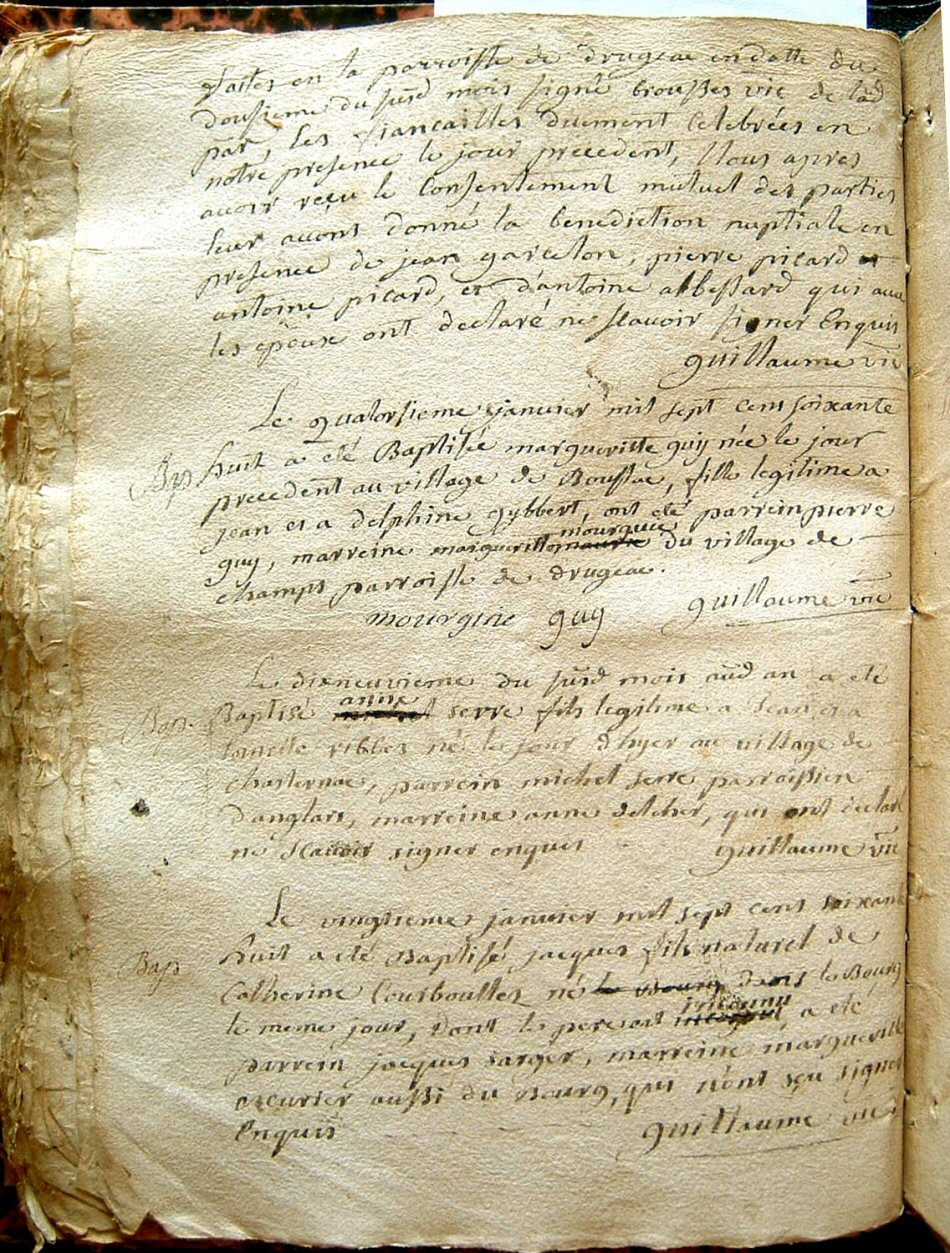 faites en la parroisse de drugeac en datte du
dousieme du susd mois signé brousses vic de lad
par, les fiancailles duement Celebrées en
notre presence le jour precedent, Nous apres
avoir reçu le Consentement mutuel des parties
leur avons donné la benediction nuptiale en
presence de jean garcelon, pierre picard et
antoine picard, et d'antoine albessard qui avec
les epoux ont declaré ne scavoir signer Enquis
guillaume vic
Le quatorsieme janvier mil sept cens soixante
Bap huit a eté Baptisée margueritte guy née le jour
precedent au village de Boussac, fille legitime a
jean et a delphine gybbert, ont eté parrein pierre
guy, marreine margueritte mourguie du village de
champs parroisse de drugeac.
mourguie guy guillaume vic
Le dixneuvieme du susd mois aud an a eté
Bap Baptisé anne serre fils legitime a Jean et a
ribbes né le jour d'hyer au village de
chasternac, parrein michel serre parroissien
d'anglars, marreine anne delcher, qui ont declaré
ne scavoir signer enquis guillaume vic
Le vingtieme janvier mil sept cens soixante
Bap huit a eté Baptisé jacques fils naturel de
Catherine Courboulles né le Bourg dans le Bourg
le meme jour, dont le pere est inconnu, a eté
parrein jacques sarger, marreine margueritte
mcurier aussi du Bourg, qui n'ont sçu signer
Enquis guillaume vic